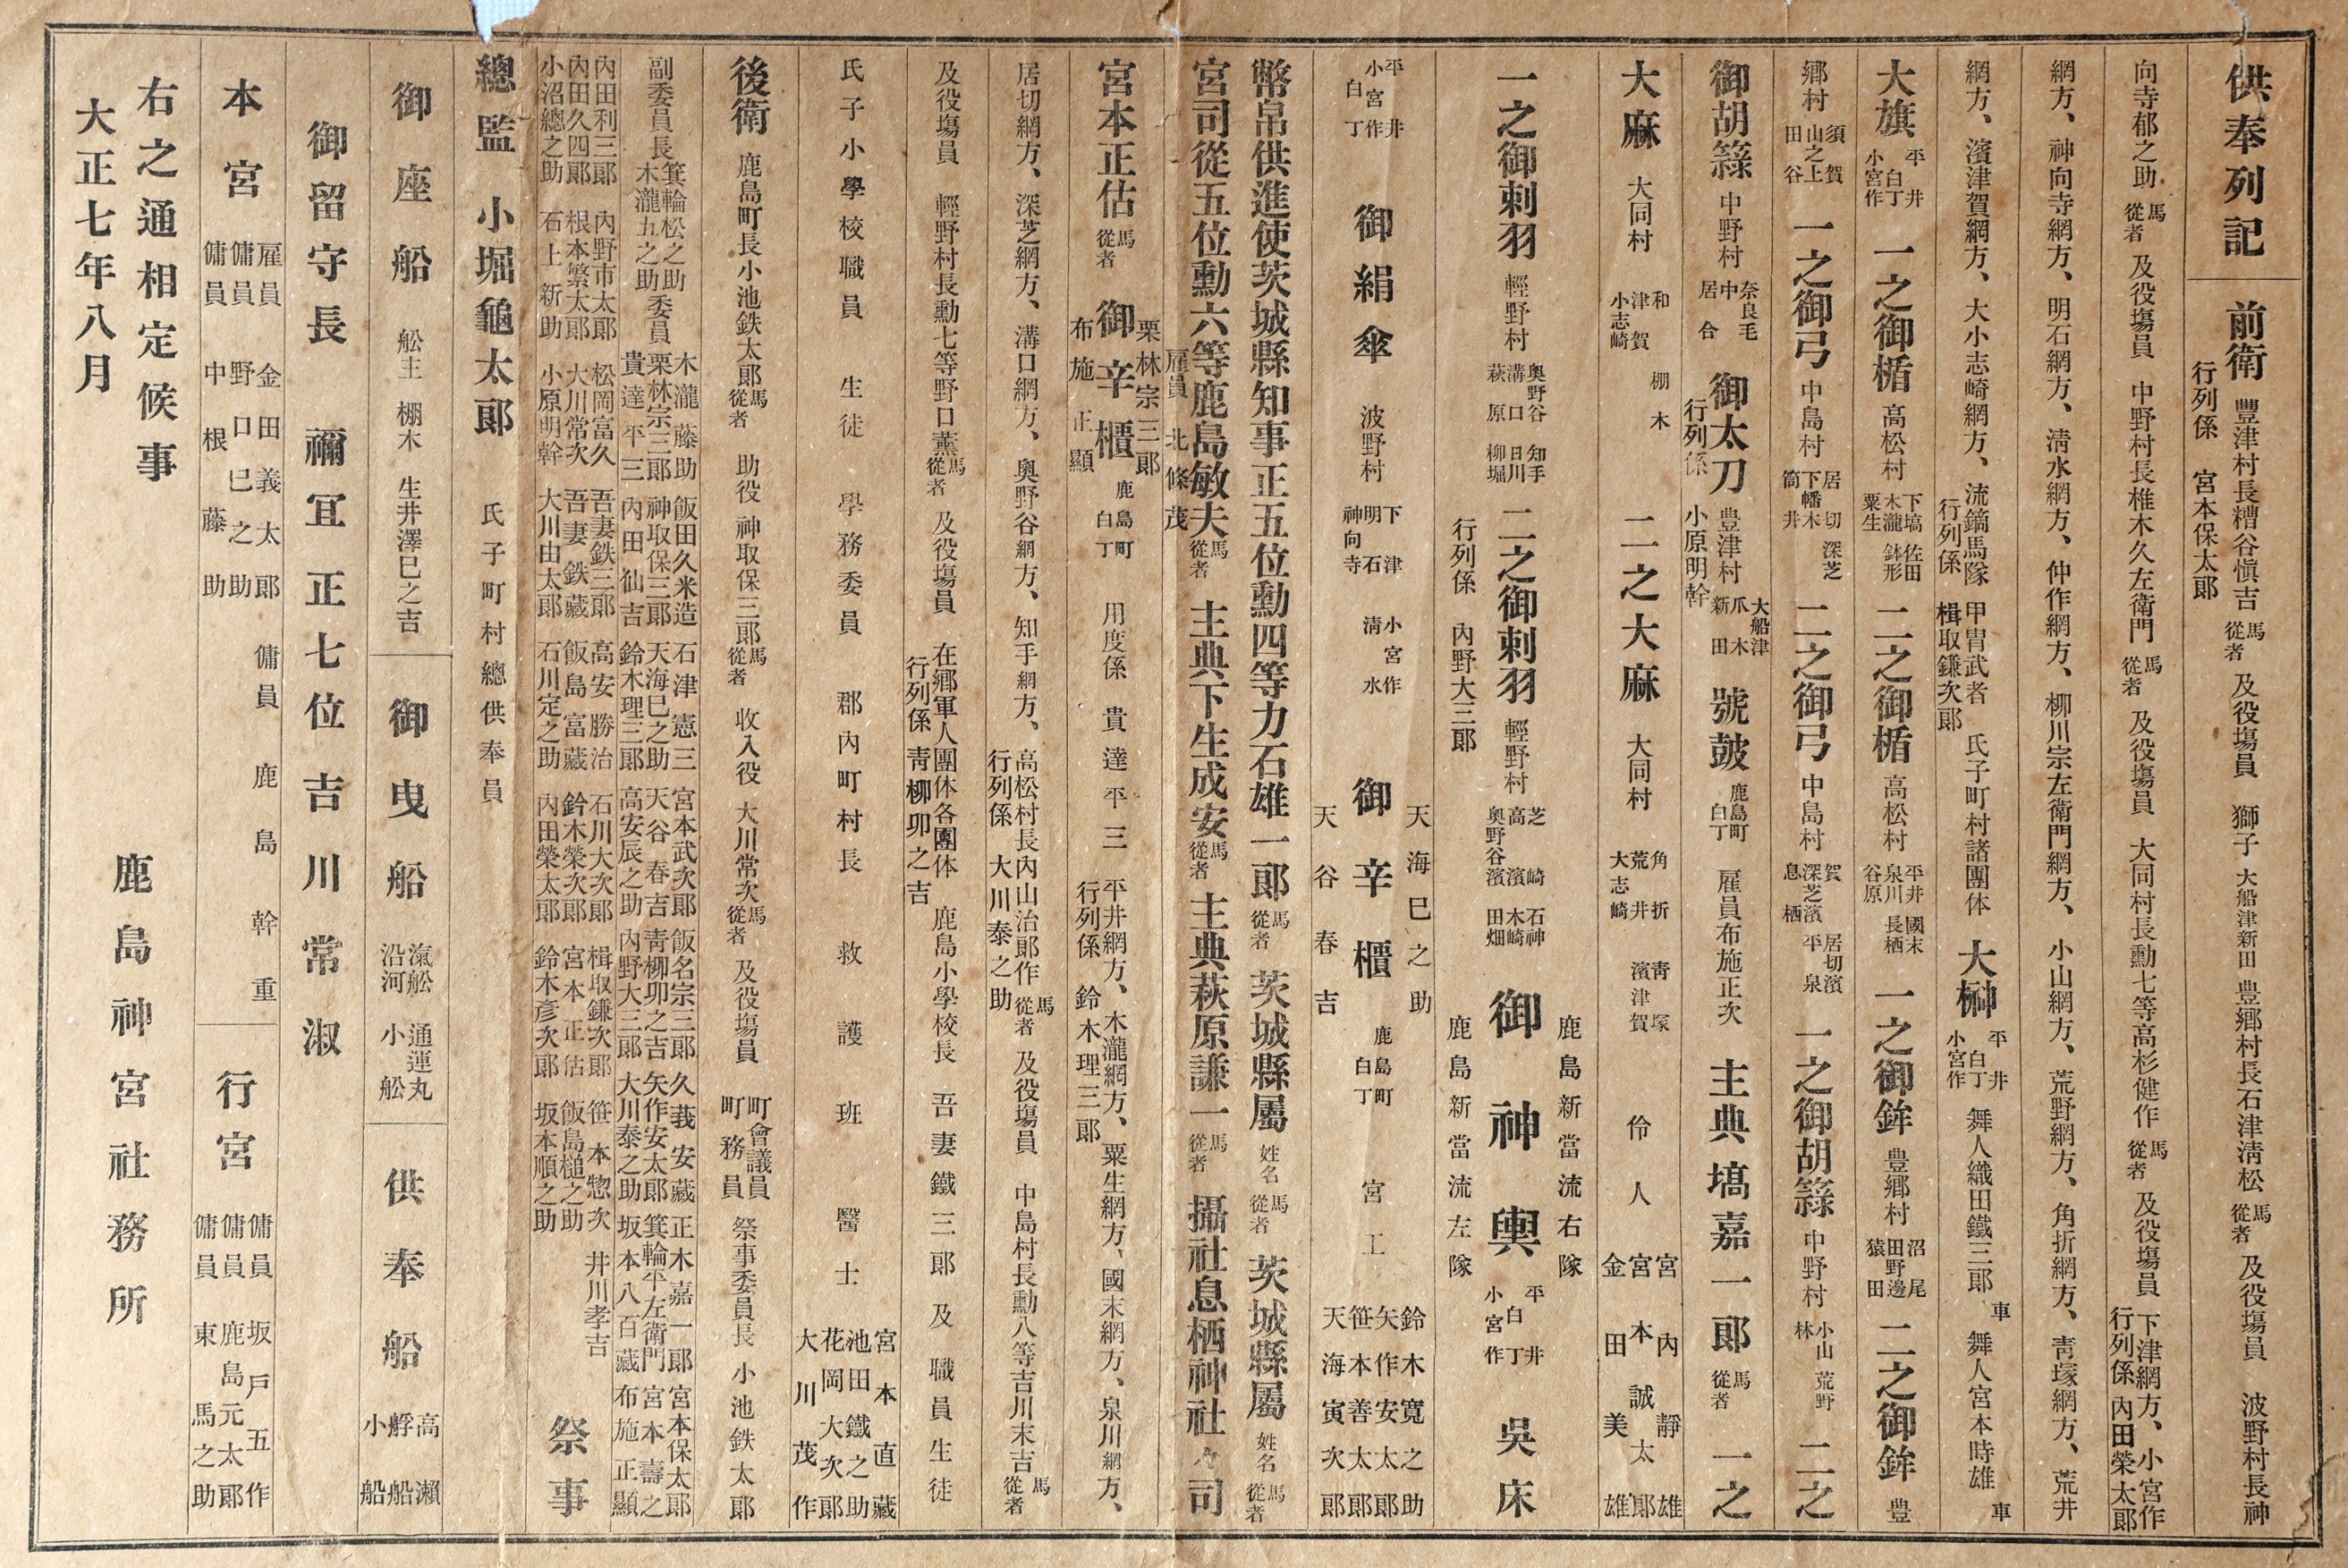 供奉列記
前衛 豐津村長糟谷愼吉 馬從者 及役塲員 獅子 大船津新田 豊郷村長石津淸松 馬從者 及役塲員 波野村長神
行列係 宮本保太郎
向寺郁之助 馬從者 及役塲員 中野村長椎木久左衛門 馬從者 及役塲員 大同村長勳七等高杉健作 馬從者 及役塲員 下津網方、小宮作
行列係 內田榮太郎
網方、神向寺網方、明石網方、清水網方、仲作網方、柳川宗左衛門網方、小山網方、荒野網方、角折網方、靑塚網方、荒井
網方、濱津賀網方、大小志崎網方、流鏑馬隊 甲冑武者 氏子町村諸團体 大榊 平井 白丁 小宮作 舞人織田鐵三郎 車 舞人宮本時雄 車
行列係 楫取鎌次郎
大旗 平井 白丁 小宮作 一之御楯 高松村 下塙 木瀧 粟生 佐田 鉢形 二之御楯 高松村 平井 泉川 谷原 國末 長栖 一之御鉾 豊郷村 沼尾 田野邊 猿田 二之御鉾 豊
郷村 須賀 山之上 田谷 一之御弓 中島村 居切 下幡木 筒井 深芝 二之御弓 中島村 賀 深芝濱 息栖 居切濱 平泉 一之御胡籙 中野村 小山 林 荒野 二之
御胡籙 中野村 奈良毛 中 居合 御太刀 豊津村 大船津 爪木 新田 號鼓 鹿島町 白丁 雇員布施正次 主典塙嘉一郎 馬從者 一之
行列係 小原明幹
大麻 大同村 和 津賀 小志崎 棚木 二之大麻 大同村 角折 荒井 大志崎 靑塚 濱津賀 伶人 宮內靜雄 宮本誠太郎 金田美雄
一之御刺羽 輕野村 奥野谷 溝口 萩原 知手 日川 柳堀 二之御刺羽 輕野村 芝崎 高濱 奥野谷濱 石神 木崎 田畑 御神輿 平井 白丁 小宮作 吳床
鹿島新當流右隊
鹿島新當流左隊
行列係 內野大三郎
平井 小宮作 白丁 御絹傘 波野村 下津 明石 神向寺 小宮作 淸水 御辛櫃 鹿島町 白丁 宮工 鈴木寬之助 矢作安太郎 笹本善太郎 天海寅次郎
天海巳之助
天谷春吉
幣帛供進使茨城縣知事正五位勳四等力石雄一郎 馬從者 茨城縣屬 姓名 馬從者 茨城縣屬 姓名 馬從者
宮司從五位勳六等鹿島敏夫 馬從者 主典下生成安 馬從者 主典萩原謙一 馬從者 攝社息栖神社々司
雇員 北條茂
宮本正估 馬從者 御辛櫃 鹿島町 白丁 用度係 貴達平三 平井網方、木瀧網方、粟生網方、國末網方、泉川網方、
栗林宗三郎
布施正顯
行列係 鈴木理三郎
居切網方、深芝網方、溝口網方、奥野谷網方、知手網方、高松村長內山治郎作 馬從者 及役塲員 中島村長勳八等吉川末吉 馬從者
行列係 大川泰之助
及役塲員 輕野村長勳七等野口薰 馬從者 及役塲員 在鄉軍人團体各團体 鹿島小學校長 吾妻鐵三郎 及職員生徒
行列係 靑柳卯之吉
氏子小學校職員生徒 學務委員 郡內町村長 救護班 醫士 宮本直藏 池田鐵之助 花岡大次郎 大川茂作
後衛 鹿島町長小池鉄太郎 馬從者 助役 神取保三郎 馬從者 收入役 大川常次 馬從者 及役塲員 町會議員 町務員 祭事委員長 小池鉄太郎
副委員長 箕輪松之助 木瀧五之助 委員 木瀧藤助 栗林宗三郎 貴達平三 飯田久米造 神取保三郎 內田仙吉 石津憲三 天海巳之助 鈴木理三郎 宮本武次郎 天谷春吉 高安辰之助 飯名宗三郎 靑柳卯之吉 內野大三郎 久莪安藏 矢作安太郎 大川泰之助 正木嘉一郎 箕輪平左衛門 坂本八百藏 宮本保太郎 宮本壽之 布施正顯
內田利三郎 內田久四郎 小沼總之助 內野市太郎 根本繁太郎 石上新助 松岡富久 大川常次 小原明幹 吾妻鉄三郎 吾妻鉄藏 大川由太郎 高安勝治 飯島富藏 石川定之助 石川大次郎 鈴木榮次郎 內田榮太郎 楫取鎌次郎 宮本正估 鈴木彥次郎 笹本惣次 飯島槌之助 坂本順之助 井川孝吉 祭事
總監 小堀龜太郎 氏子町村總供奉員
御座船 舩主 棚木 生井澤巳之吉 御曳船 滊舩 通運丸 沿河 小舩 供奉船 高瀨船 艀船 小船
御留守長 禰宜正七位吉川常淑
本宮 雇員 金田義太郎 傭員 野口巳之助 傭員 中根藤助 傭員 鹿島幹重 行宮 傭員 坂戶五作 傭員 鹿島元太郎 傭員 東馬之助
右之通相定候事
大正七年八月
鹿島神宮社務所